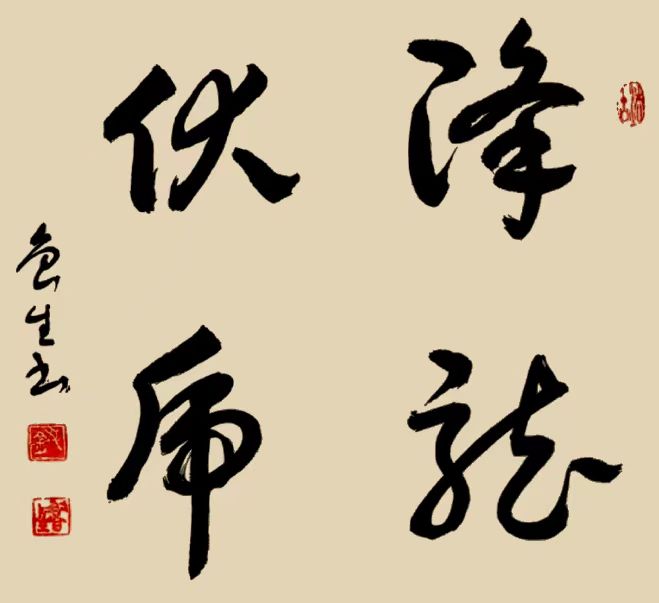 降龍
伏虎
魯生书